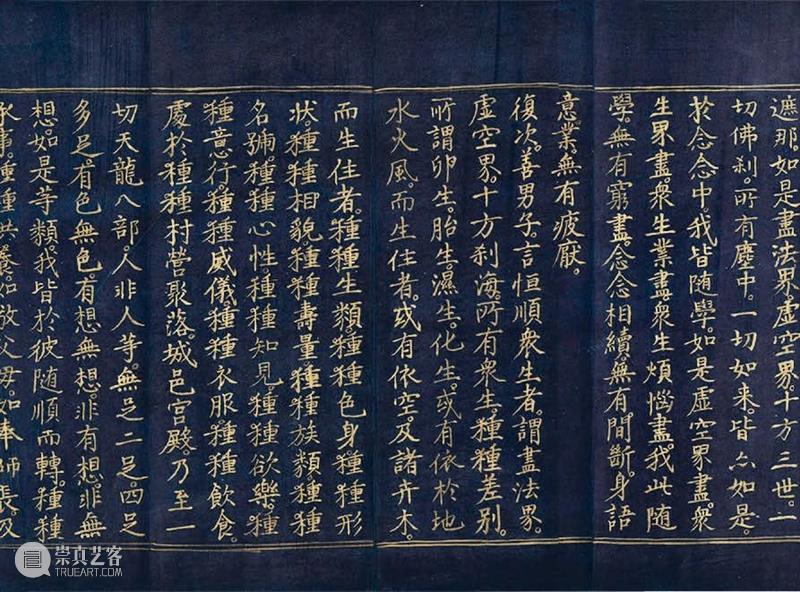 遮那。如是盡法界。虛空界。十方三世。一
切佛刹。所有塵中。一切如来。皆亦如是。
於念念中。我皆随學。如是虛空界盡。衆
生界盡。衆生業盡。衆生煩惱盡。我此随
學。無有窮盡。念念相續。無有間斷。身語
意業。無有疲厭。
復次。善男子。言恒順衆生者。謂盡法界。
虛空界。十方刹海。所有衆生。種種差別。
所謂卵生。胎生。濕生。化生。或有依於地
水火風。而生住者。或有依空。及諸卉木。
而生住者。種種生類。種種色身。種種形
狀。種種相貌。種種壽量。種種族類。種種
名號。種種心性。種種知見。種種欲樂。種
種意行。種種威儀。種種衣服。種種飲食。
處於種種村營聚落。城邑宫殿。乃至一
切天龍八部。人非人等。無足二足。四足
多足。有色無色。有想無想。非有想。非無
想。如是等類。我皆於彼随順而轉。種種
承事。種種供養。如敬父母。如奉師長。及
崇真艺客
TRUEART.COM